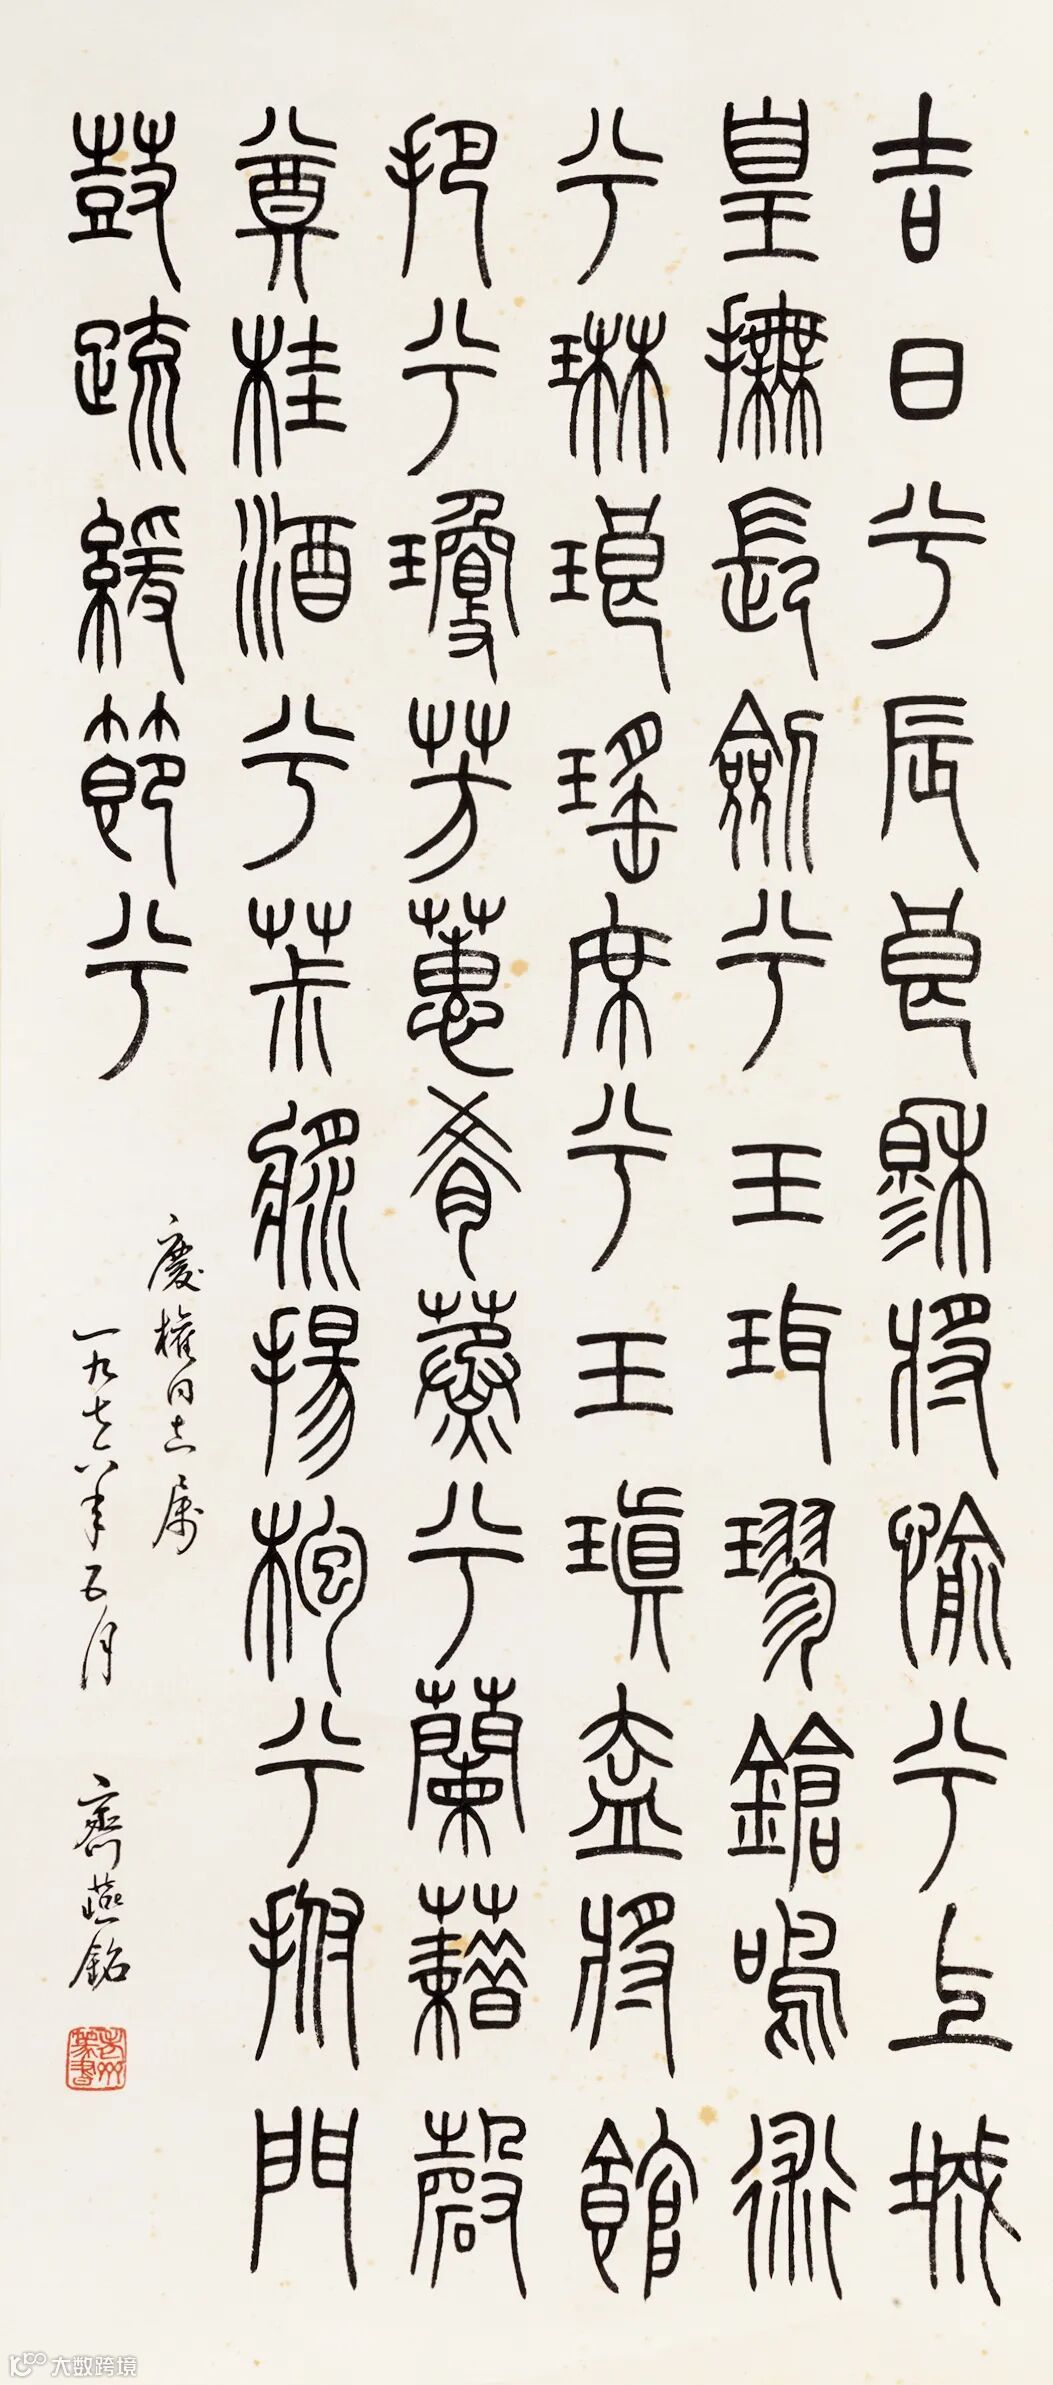 吉日兮辰良穆將愉兮上城
皇撫長劍兮玉珥璆鎗鳴術
兮琳琅瑤席兮玉瑱盍將館
把兮瓊芳蕙肴蒸兮蘭藉磬
奠桂酒兮茮漿揚枹兮拊門
鼓疏緩節兮
慶權同志屬
一九七八年五月 齊燕銘
大数跨境